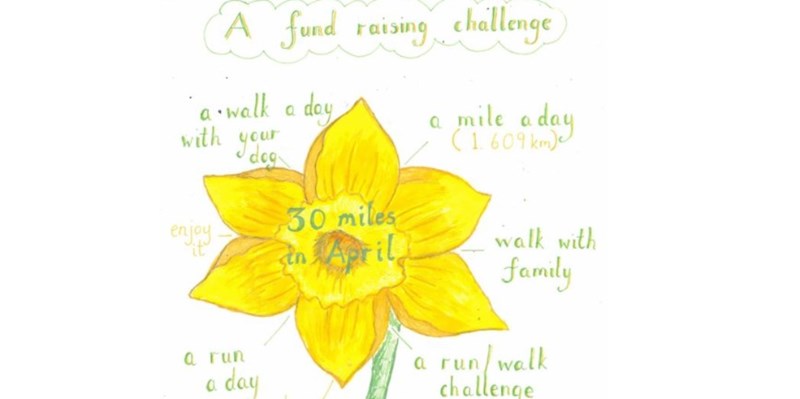 A fund raising challenge
a walk a day
with your
dog
a mile a day
(1.609km)
30 miles
in April
enjoy
it
walk with
family
a run
a day
a run/walk
challenge